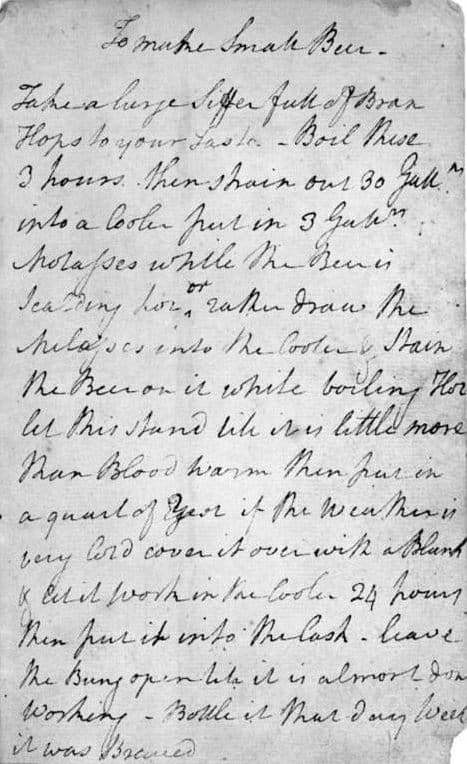 To make Small Beer -
Take a large Siffer full of Bran
Hops to your Taste - Boil these
3 hours. then strain out 30 Gall.ns
into a Cooler put in 3 Gall.ns
Molasses while the Beer is
Scalding hot or rather draw the
Molasses into the Cooler & Stain
the Beer on it while boiling Hot
let this stand till it is little more
than Blood warm then put in
a quart of Yest if the weather is
very Cold cover it over with a Blank
& let it work in the Cooler 24 hours
then put it into the Cask - leave
the Bung open till it is almost don
working - Bottle it that day Week
it was Brewed